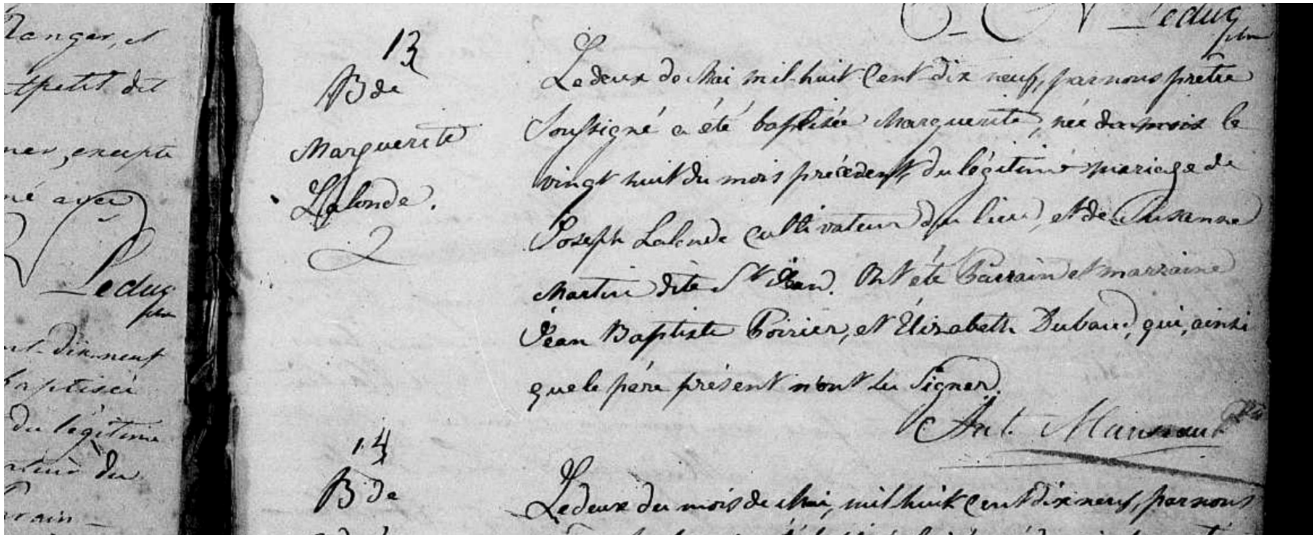 Ranger, et
tpetit dit
mer, excepte
né avec
Leduc
ptre
nt-dix-neuf
baptisée
du légitime
ateur du
Parain
Leduc
ptre
13
B de
Marguerite
Lalonde.
Le deux de Mai mil-huit Cent dix neuf, par nous pretre
Soussigné a été baptisée Marguerite, née du mois le
vingt huit du mois précédent, du légitime mariage de
Joseph Lalonde Cultivateur du lieu, et de Susanne
Martin dite St Jean. Ont été Parrain et marraine
Jean Baptiste Poirier, et Elizabeth Dubaud, qui, ainsi
que le père présent n'ont su Signer.
Ant.
14
B de
Le deux du mois de Mai, mil huit Cent dix neuf, par nous